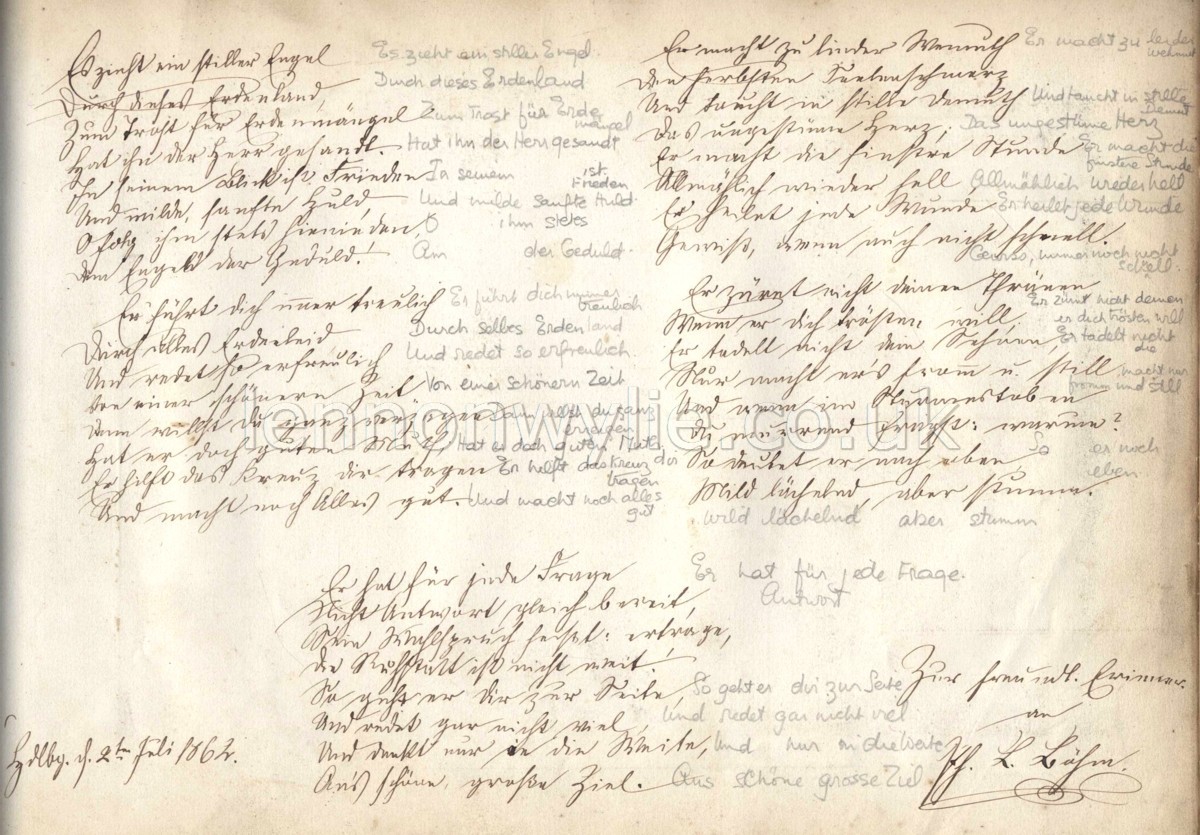 Es zieht ein stiller Engel
Durch dieses Erdenland,
Zum Trost für Erdenmängel
Hat ihn der Herr gesandt.
In seinem Blick ist Frieden
Und milde, sanfte Huld,
O folg ihm stets hienieden,
Dem Engel der Geduld!
Es zieht ein stiller Engel
Durch dieses Erdenland
Zum Trost für Erde
mängel
Hat ihn der Herr gesandt
In seinem ist
Frieden
Und milde sanfte Huld
O ihm stets
Am der Geduld.
Er führt dich imer treulich
Durch alles Erdenleid
Und redet so erfreulich
Von einer schönern Zeit
Denn willst Du ganz verzagen
Hat er doch guten Muth,
Er hilft das Kreuz dir tragen
Und macht noch Alles gut.
Er führt dich immer
treulich
Durch selbes Erdenland
Und redet so erfreulich
Von einer schönern Zeit
Dann willst du ganz
verzagen
Hat er doch guten Muth
Er helft das Kreuz dir
tragen
Und macht noch alles
gut
Er macht zu linder Wemuth
Den herbsten Seelenschmerz
Und taucht in stille Demuth
Das ungestüme Herz.
Er macht die finstre Stunde
Allmählich wieder hell
Er heilet jede Wunde
Gewiß, wenn auch nicht schnell.
Er macht zu leider
wehmut
Und taucht in stille
Demut
Das ungestüme Herz
Er macht die
finstere Stunde
Allmählich wieder hell
Er heilet jede Wunde
Gewiss, immer noch nicht
schell.
Er zürnt nicht deinen Thränen
Wenn er dich trösten will,
Er tadelt nicht dein Sehnen
Nur macht er's fromm u. still
Und wenn im Sturmestoben
Du murrend fragst: warum?
So deutet er nach oben,
Mild lächelnd, aber stumm.
Er zürnt nicht deinen
er dich trösten will
Er tadelt nicht
die
macht nur
fromm und still
So er noch
eben.
wild lächelnd aber stumm
Er hat für jede Frage
Nicht Antwort gleich bereit,
Sein Wahlspruch heißt: ertrage,
Die Ruhstatt ist nicht weit!
So geht er Dir zur Seite,
Und redet gar nicht viel
Und denkt nur in die Weite,
An's schöne, große Ziel.
Er hat für jede Frage.
Antwort
So geht er dir zur Seite
Und redet gar nicht viel
Und nur in die Weite
Aus schöne grosse Ziel.
Hdlbg. d. 2ten Juli 1862.
Zur freundl. Erinner.
an
Ph. L. Böhm.
lennonwylie.co.uk